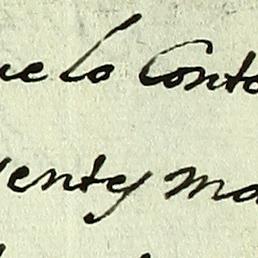 ue lo Conte
ente y ma